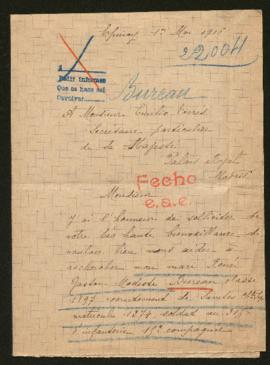 Epinay 17 Mai 1915
22004
Pedir informes
Que se hace así
Bureau
A Monsieur Emilio Torres
Secretaire particulier
de Sa Majesté
Palais Royal
Madrid
Fecho
e.a.e.
Monsieur
J'ai l'honneur de solliciter de
votre très haute bienveillance de
vouloir bien nous aider à
rechercher mon mari
Gaston Modeste Bureau classe
1897 recrutement de Saintes
matricule 1274 soldat au
d'infanterie 17e compagnie